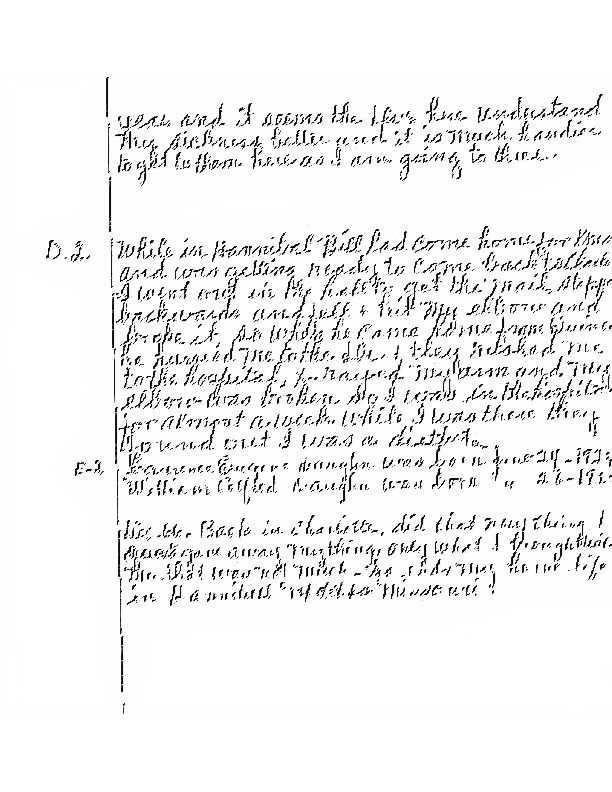 year and it seems the Drs. here understand
my sickness better and it is much handier
to get to them here as I am going to three.
D.2. While in Hannibal Bill had come home for
and was getting ready to come back to
I went out in the hall to get the mail, stepped
backwards and fell & hit my elbow and
broke it. So when he came home from
he hurried me to the Dr. & they rushed me
to the hospital, X-rayed my arm and my
elbow was broken so I was in the hospital
for almost a week. While I was there they
found out I was a diabetic.
E-2 Eugene Vaughn was born June 29-
William Vaughn was born " 26-
Back in Charlotte, did that next thing I
gave away anything, only what I thought
that was not much. - ends my home life
in Hannibal Missouri!